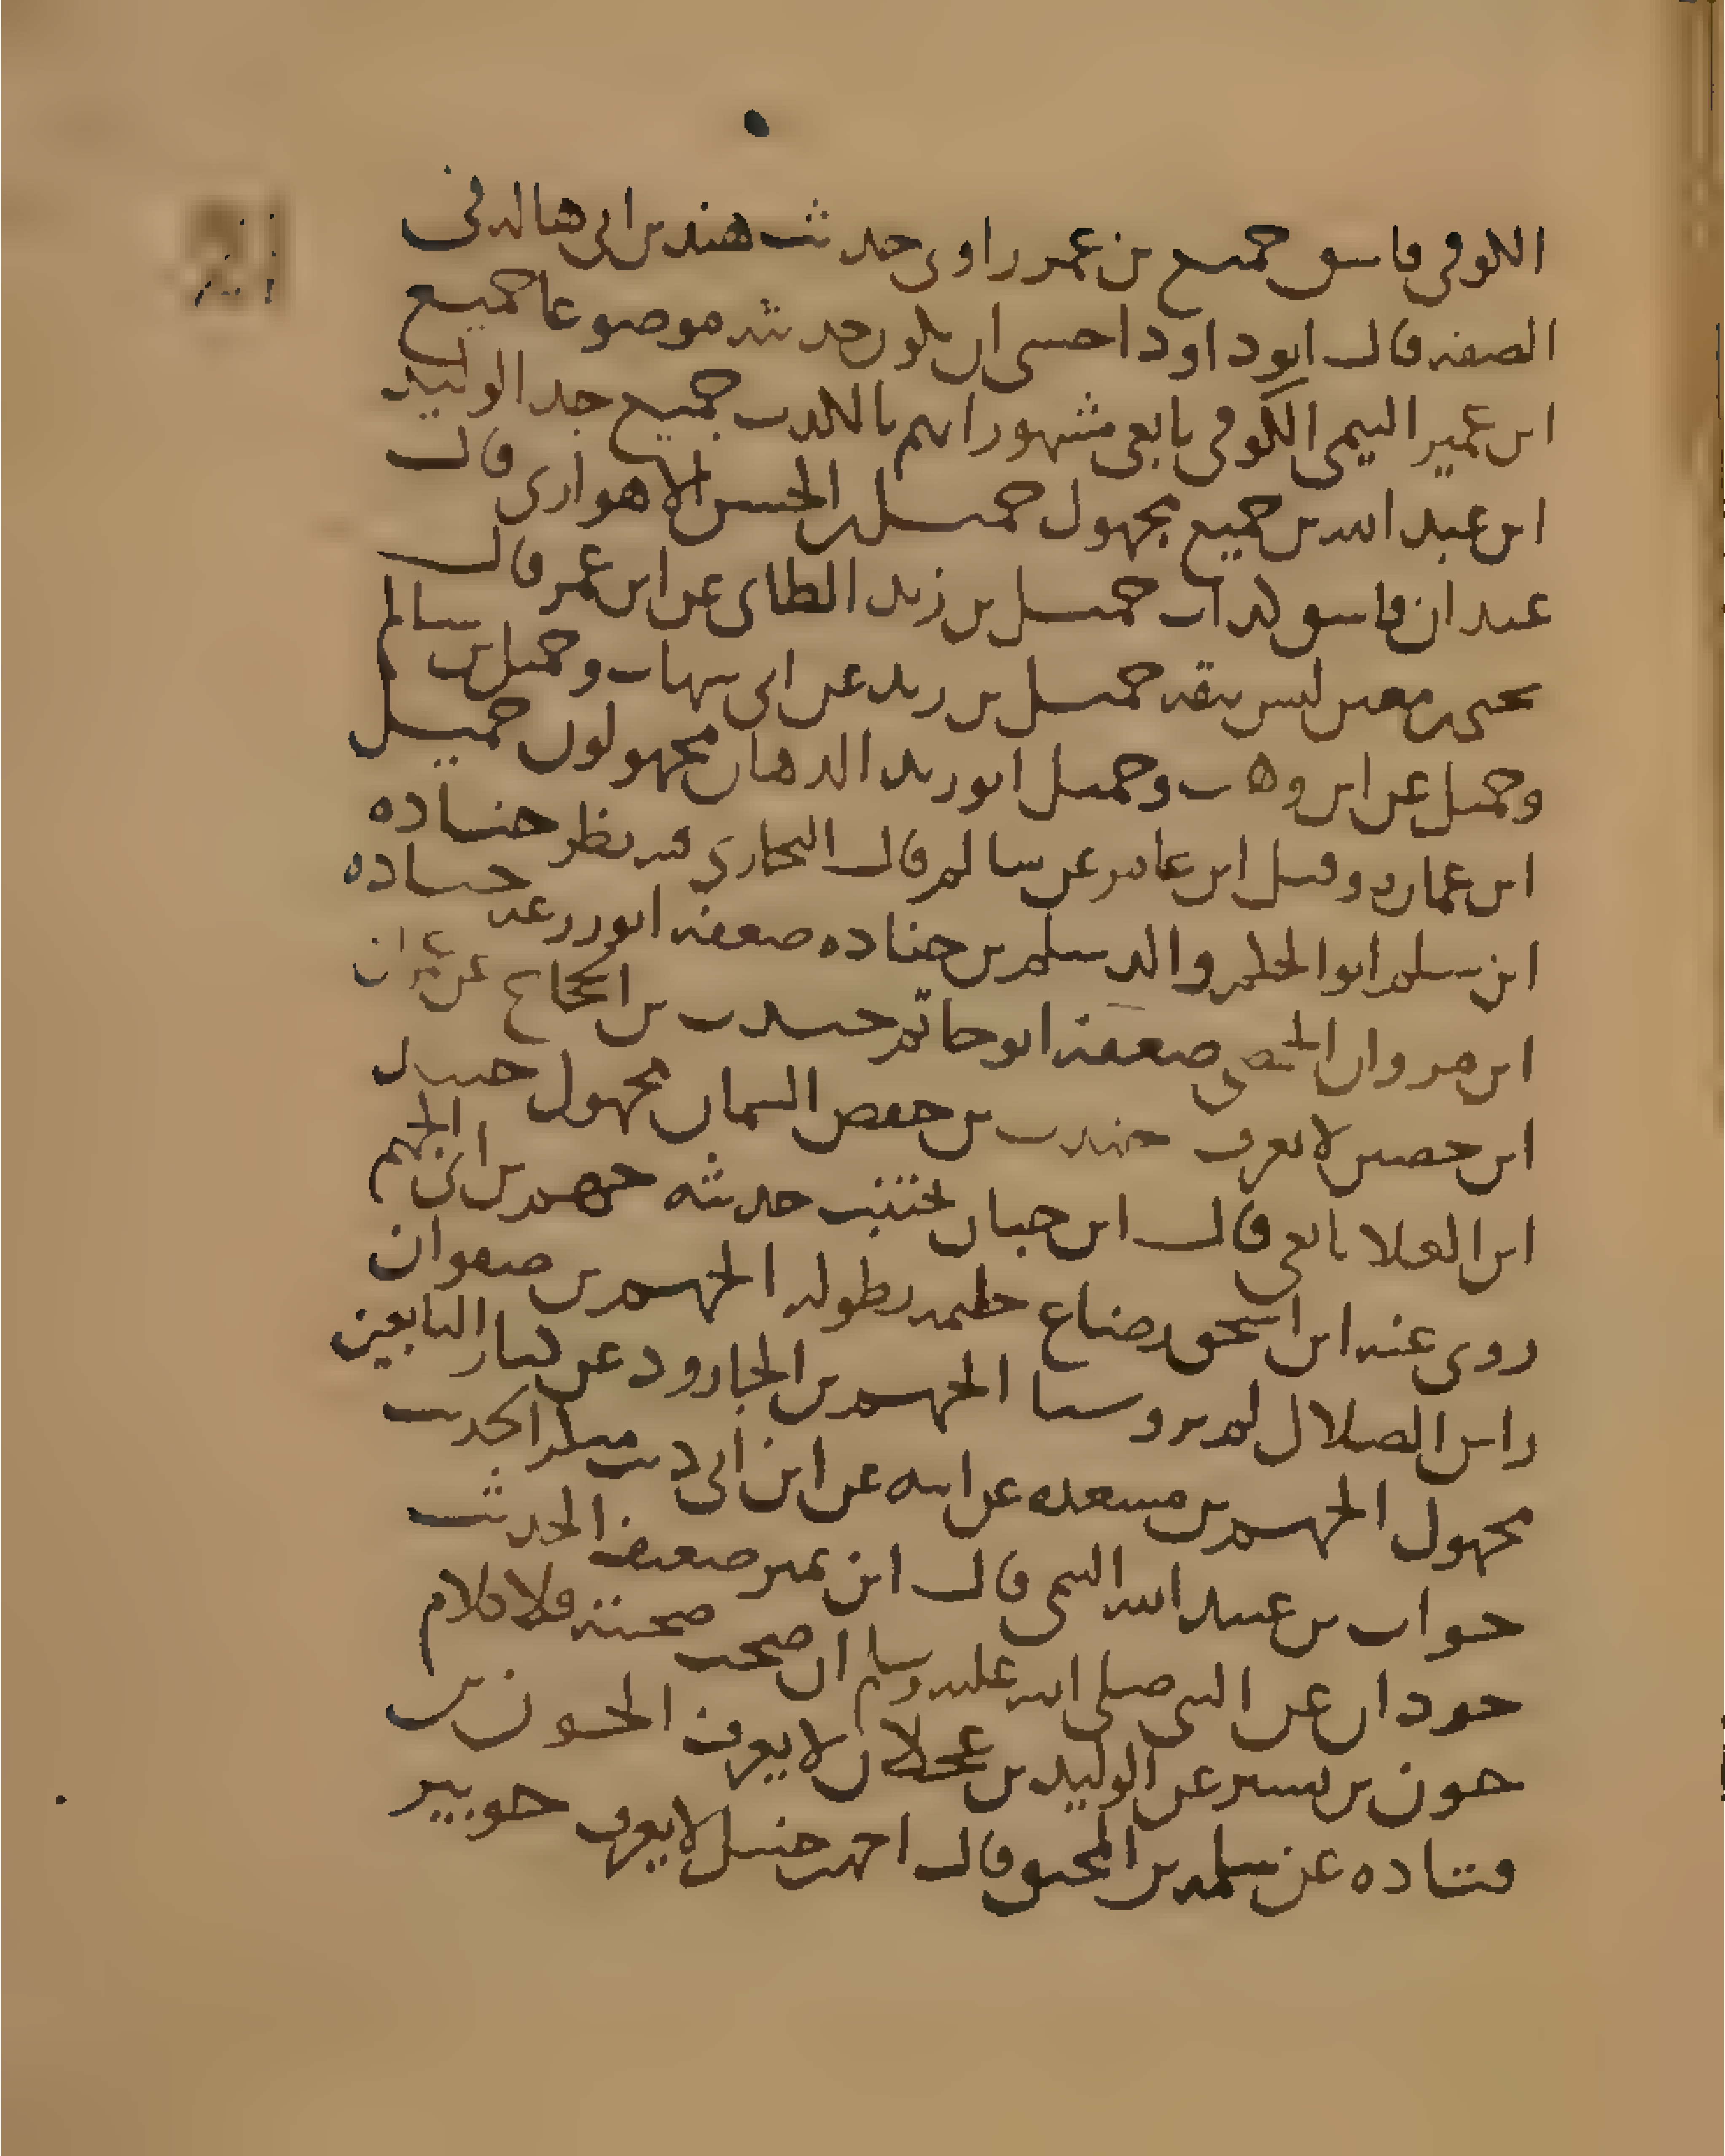 الكوفي فاسق جميع بن عمر راوي حديث هند بن ابي هاله في
الصفه قال ابو داود اخشى ان يكون حديثه موضوعا جميع
ابن عمير التيمي الكوفي تابعي مشهور اتهم بالكذب جميع جد الوليد
ابن عبد الله بن جميع مجهول جميل بن الحسن الاهوازي قال
عبدان فاسق كذاب جميل بن زيد الطاى عن ابن عمر قال
يحيى بن معين ليس بثقه جميل بن زيد عن ابي شهاب وجميل بن سالم
وجميل عن ابن وهب وجميل ابو زيد الدهان مجهولون جميل
ابن عماره وقيل ابن عامر عن سالم قال البخاري فيه نظر جناده
ابن سلم ابو الحكم والد سلم بن جناده ضعفه ابو زرعه جناده
ابن مروان الحمصي ضعفه ابو حاتم جندب بن الحجاج عن
ابن حصين لا يعرف جندب بن حفص السمان مجهول جندل
ابن العلا تابعي قال ابن حبان يجتنب حديثه جهم بن ابي الجهم
روى عنه ابن اسحق رضاع حليمه بطوله الجهم بن صفوان
راس الضلال لم يرو شيا الجهم بن الجارود عن كبار التابعين
مجهول الجهم بن مسعده عن ابيه عن ابن ابي ذيب منكر الحديث
جواب بن عبيد الله التيمي قال ابن نمير ضعيف الحديث
جودان عن النبي صلى الله عليه وسلم ان صحت صحبته فلا كلام
جون بن بشير عن الوليد بن عجلان لا يعرف الجون بن
قتاده عن سلمه بن المحبق قال احمد بن حنبل لا يعرف جويبر